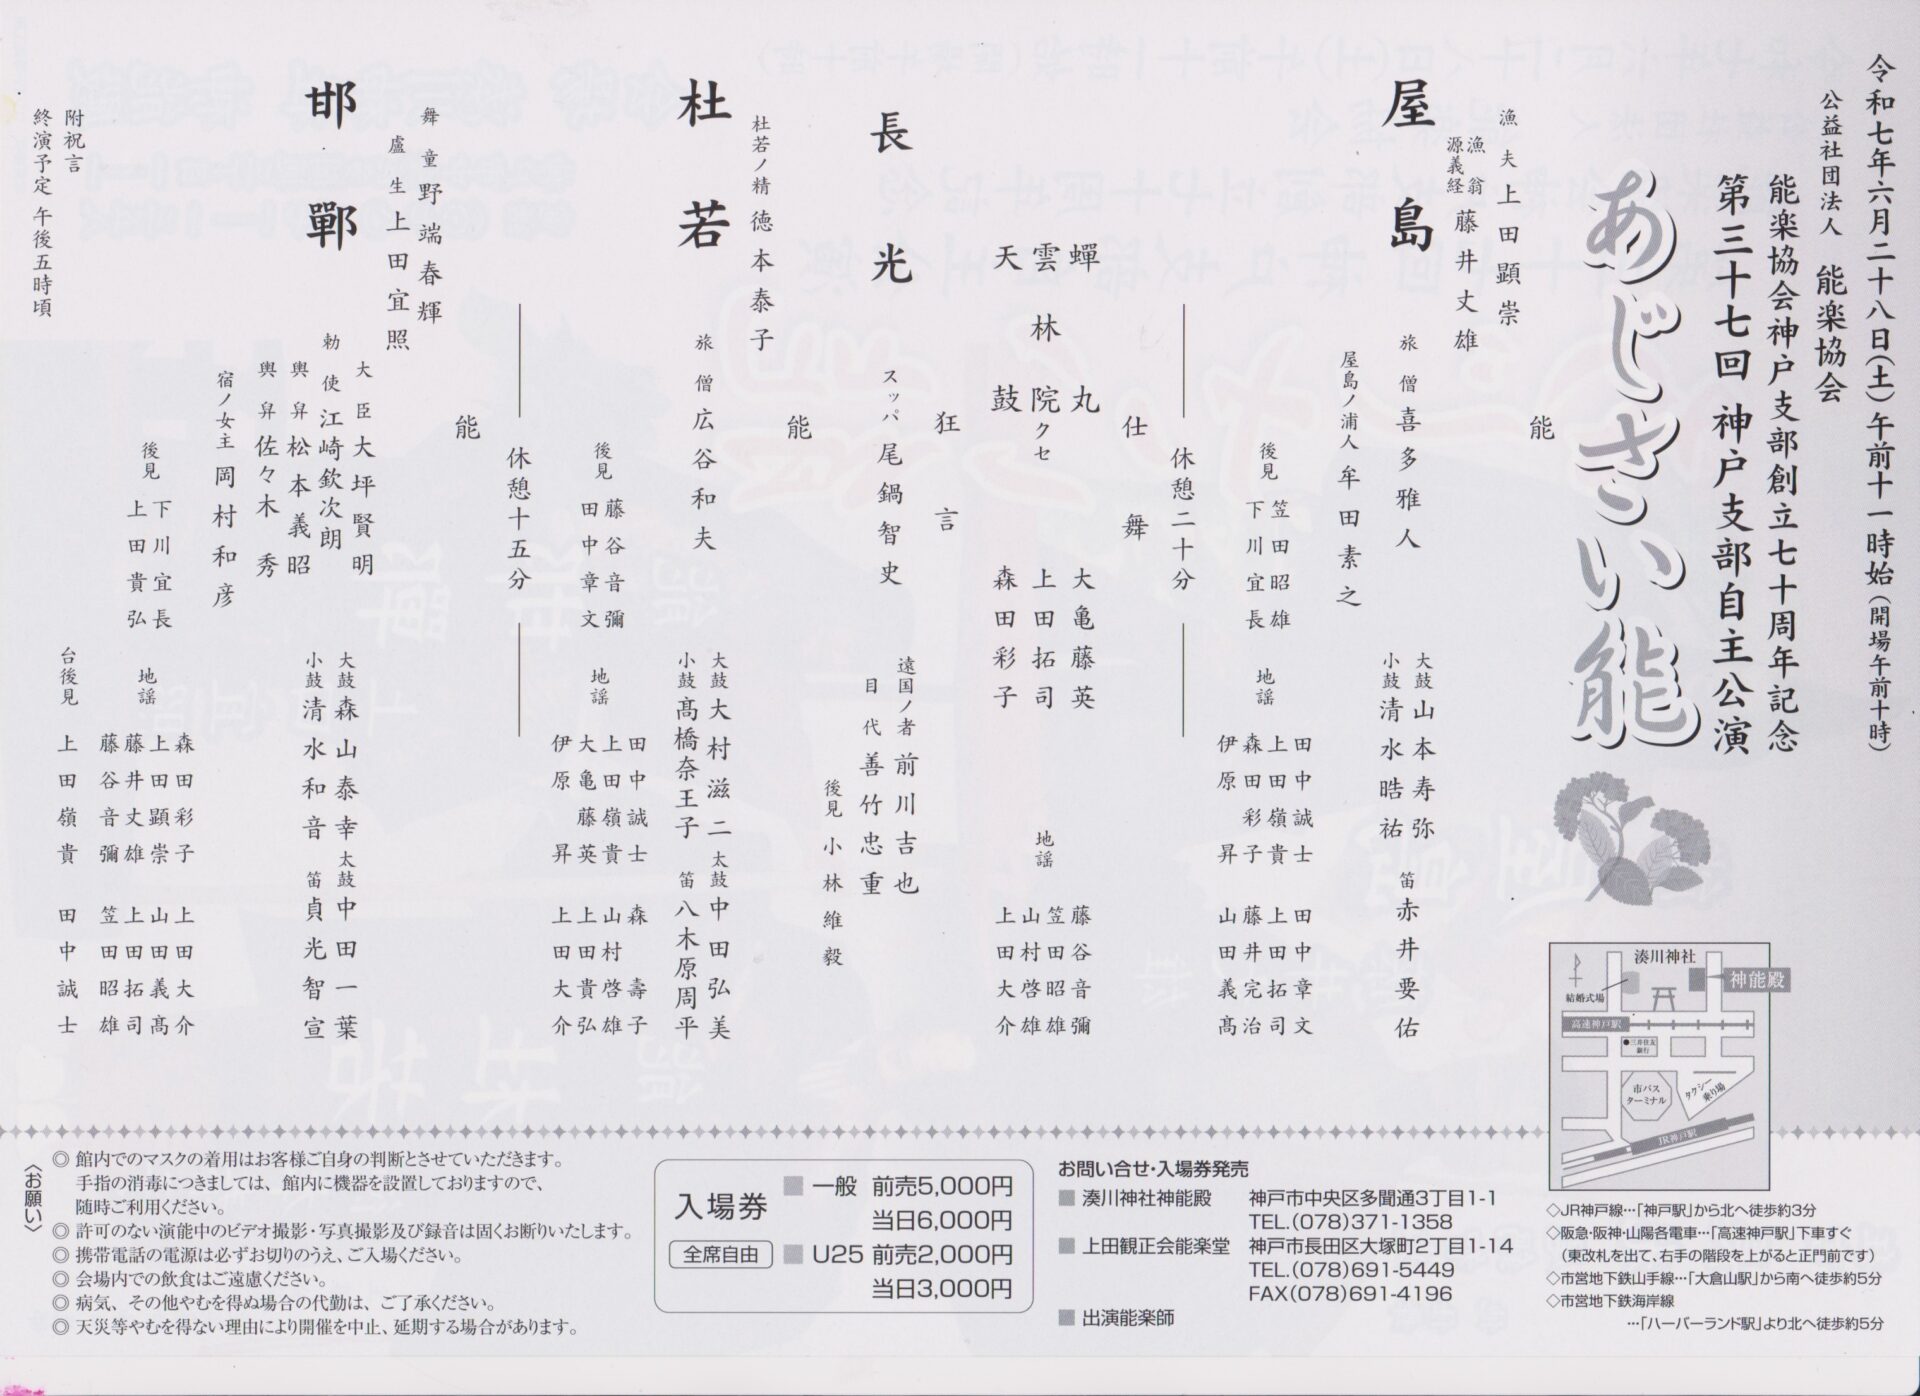 令和七年六月二十八日(土)午前十一時始(開場午前十時)
公益社団法人 能楽協会
能楽協会神戸支部創立七十周年記念
第三十七回 神戸支部自主公演
あじさい能
能
漁夫 上田顕崇
漁翁 源義経 藤井丈雄
屋島
旅僧 喜多雅人
屋島ノ浦人 牟田素之
大鼓 山本寿弥
小鼓 清水晧祐
笛 赤井要佑
後見 笠田昭雄
下川宜長
地謡
田中誠士 田中章文
上田嶺貴 上田拓司
森田彩子 藤井完治
伊原昇 山田義高
休憩二十分
仕舞
蟬丸 大亀藤英
雲林院クセ 上田拓司
天鼓 森田彩子
地謡
藤谷音彌
笠田昭雄
山村啓雄
上田大介
狂言
長光
スッパ 尾鍋智史
遠国ノ者 前川吉也
目代 善竹忠重
後見 小林維毅
能
杜若ノ精 徳本泰子
杜若
旅僧 広谷和夫
大鼓 大村滋二
小鼓 髙橋奈王子
太鼓 中田弘美
笛 八木原周平
後見 藤谷音彌
田中章文
地謡
田中誠士 森壽子
上田嶺貴 山村啓雄
大亀藤英 上田貴弘
伊原昇 上田大介
休憩十五分
能
舞童 野端春輝
盧生 上田宜照
邯鄲
大臣 大坪賢明
勅使 江崎欽次朗
輿舁 松本義昭
輿舁 佐々木秀
宿ノ女主 岡村和彦
大鼓 森山泰幸
小鼓 清水和音
太鼓 中田一葉
笛 貞光智宣
後見 下川宜長
上田貴弘
地謡
森田彩子 上田大介
上田顕崇 山田義髙
藤井丈雄 上田拓司
藤谷音彌 笠田昭雄
台後見 上田嶺貴 田中誠士
附祝言
終演予定 午後五時頃
湊川神社
神能殿
結婚式場
高速神戸駅
三井住友銀行
市バスターミナル
タクシー乗り場
JR神戸駅
〈お願い〉
◎ 館内でのマスクの着用はお客様ご自身の判断とさせていただきます。
手指の消毒につきましては、館内に機器を設置しておりますので、
随時ご利用ください。
◎ 許可のない演能中のビデオ撮影・写真撮影及び録音は固くお断りいたします。
◎ 携帯電話の電源は必ずお切りのうえ、ご入場ください。
◎ 会場内での飲食はご遠慮ください。
◎ 病気、その他やむを得ぬ場合の代勤は、ご了承ください。
◎ 天災等やむを得ない理由により開催を中止、延期する場合があります。
入場券
全席自由
■ 一般 前売5,000円
当日6,000円
■ U25 前売2,000円
当日3,000円
お問い合せ・入場券発売
■ 湊川神社神能殿 神戸市中央区多聞通3丁目1-1
TEL.(078)371-1358
■ 上田観正会能楽堂 神戸市長田区大塚町2丁目1-14
TEL.(078)691-5449
FAX(078)691-4196
■ 出演能楽師
◇JR神戸線…「神戸駅」から北へ徒歩約3分
◇阪急・阪神・山陽各電車…「高速神戸駅」下車すぐ
(東改札を出て、右手の階段を上がると正門前です)
◇市営地下鉄山手線…「大倉山駅」から南へ徒歩約5分
◇市営地下鉄海岸線
…「ハーバーランド駅」より北へ徒歩約5分